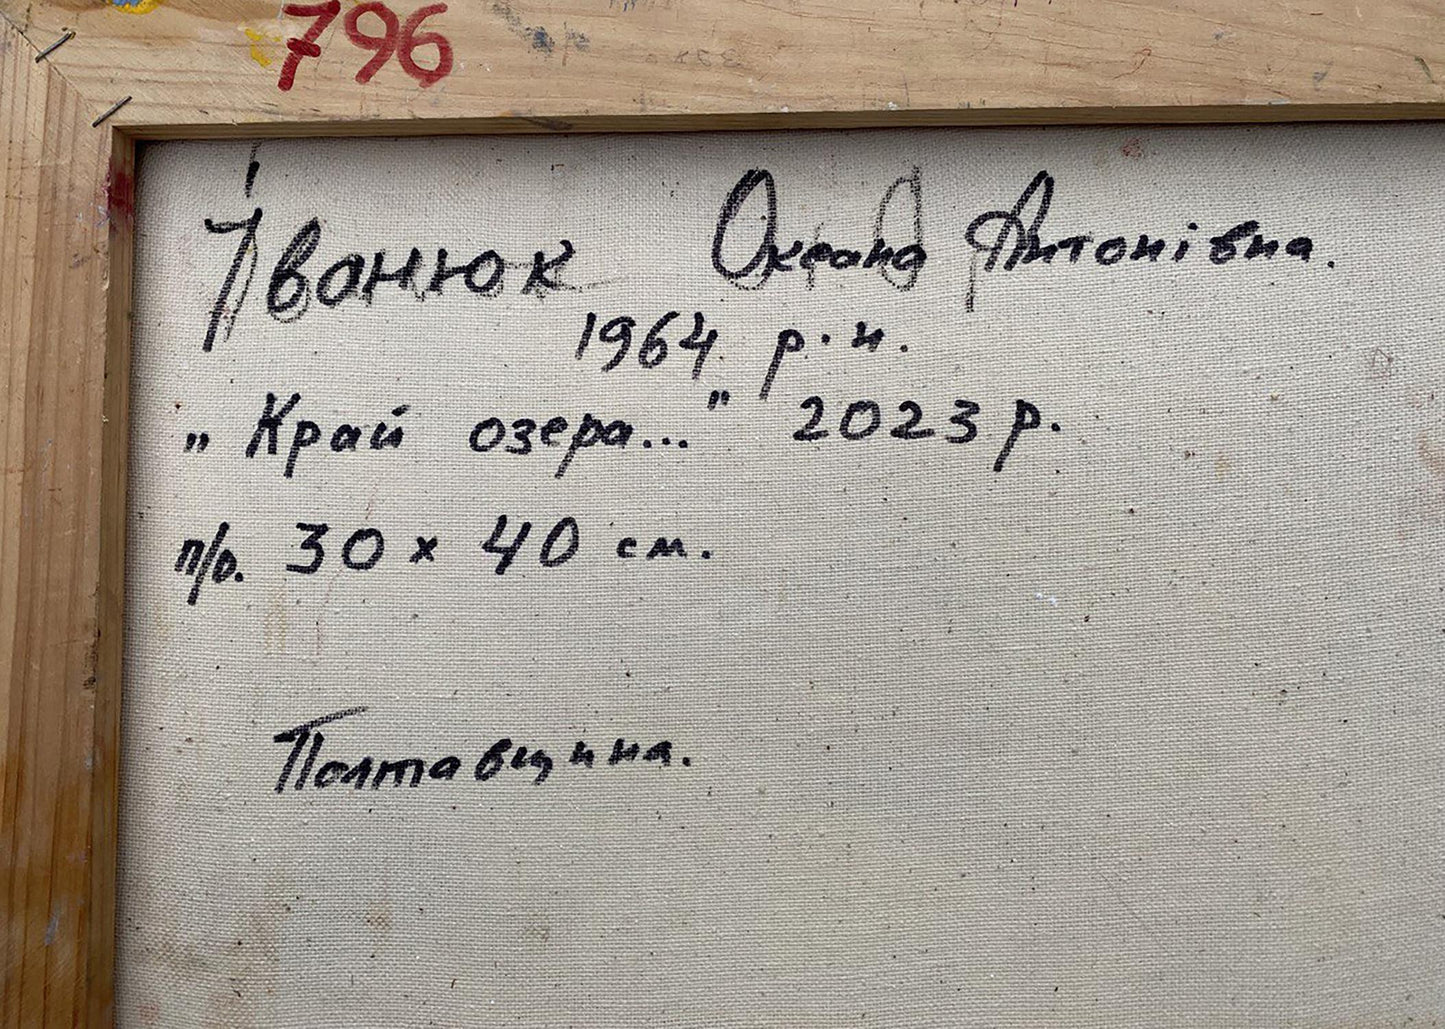 796
Іванюк Оксана Антонівна.
1964 р.н.
„Край озера..." 2023 р.
п/о. 30 x 40 см.
Полтавщина.